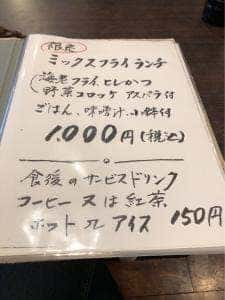 限定
ミックスフライランチ
(海老フライ、ヒレかつ
野菜コロッケ アスパラ付)
ごはん、味噌汁、小鉢付
1,000円(税込)
食後のサービスドリンク
コーヒー 又は 紅茶
ホット 又 アイス 150円